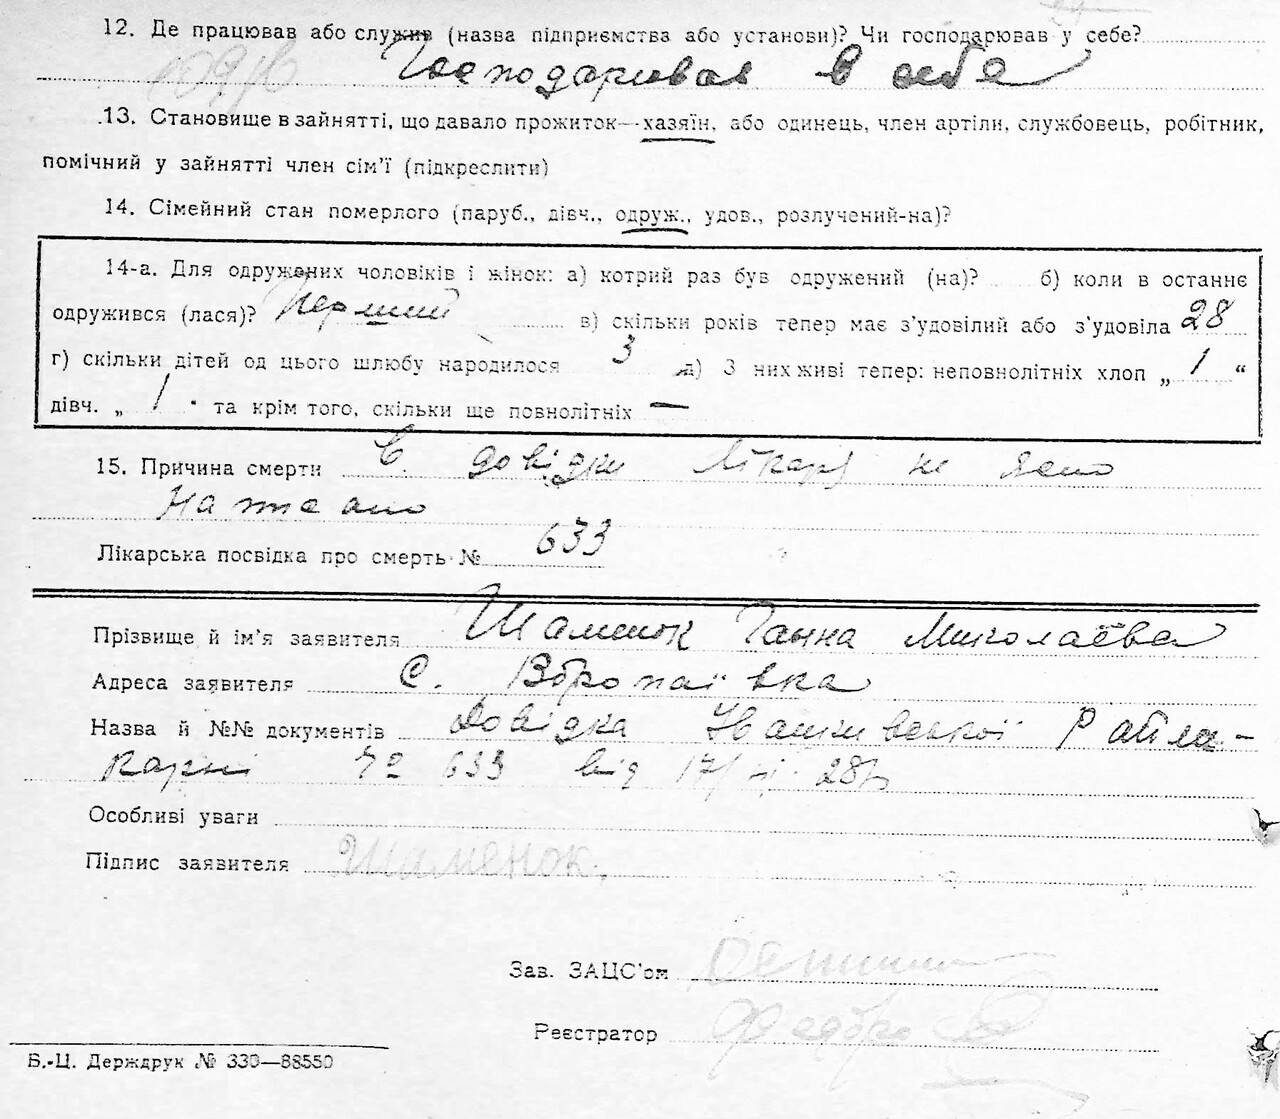 12. Де працював або служив (назва підприємства або установи)? Чи господарював у себе?
Господарював в себе
13. Становище в зайнятті, що давало прожиток—хазяїн, або одинець, член артіли, службовець, робітник,
помічний у зайнятті член сім’ї (підкреслити)
14. Сімейний стан померлого (паруб., дівч., одруж., удов., розлучений-на)?
14-а. Для одружених чоловіків і жінок: а) котрий раз був одружений (на)? б) коли в останнє
одружився (лася)? Перший в) скільки років тепер має з’удовілий або з’удовіла 28
г) скільки дітей од цього шлюбу народилося 3 д) З них живі тепер: неповнолітніх хлоп „ 1 “
дівч. „ 1 " та крім того, скільки ще повнолітніх —
15. Причина смерти В довідки лікаря не ясно
Лікарська посвідка про смерть № 633
Прізвище й ім’я заявителя Шаменок Ганна Миколаєва
Адреса заявителя С. Воропаївка
Назва й №№ документів Довідка Івашківської Райлі-
карні № 633 від 17/ 28р
Особливі уваги
Підпис заявителя Шаменок.
Зав. ЗАЦС’ом
Реєстратор
Б.-Ц. Держдрук № 330—88550